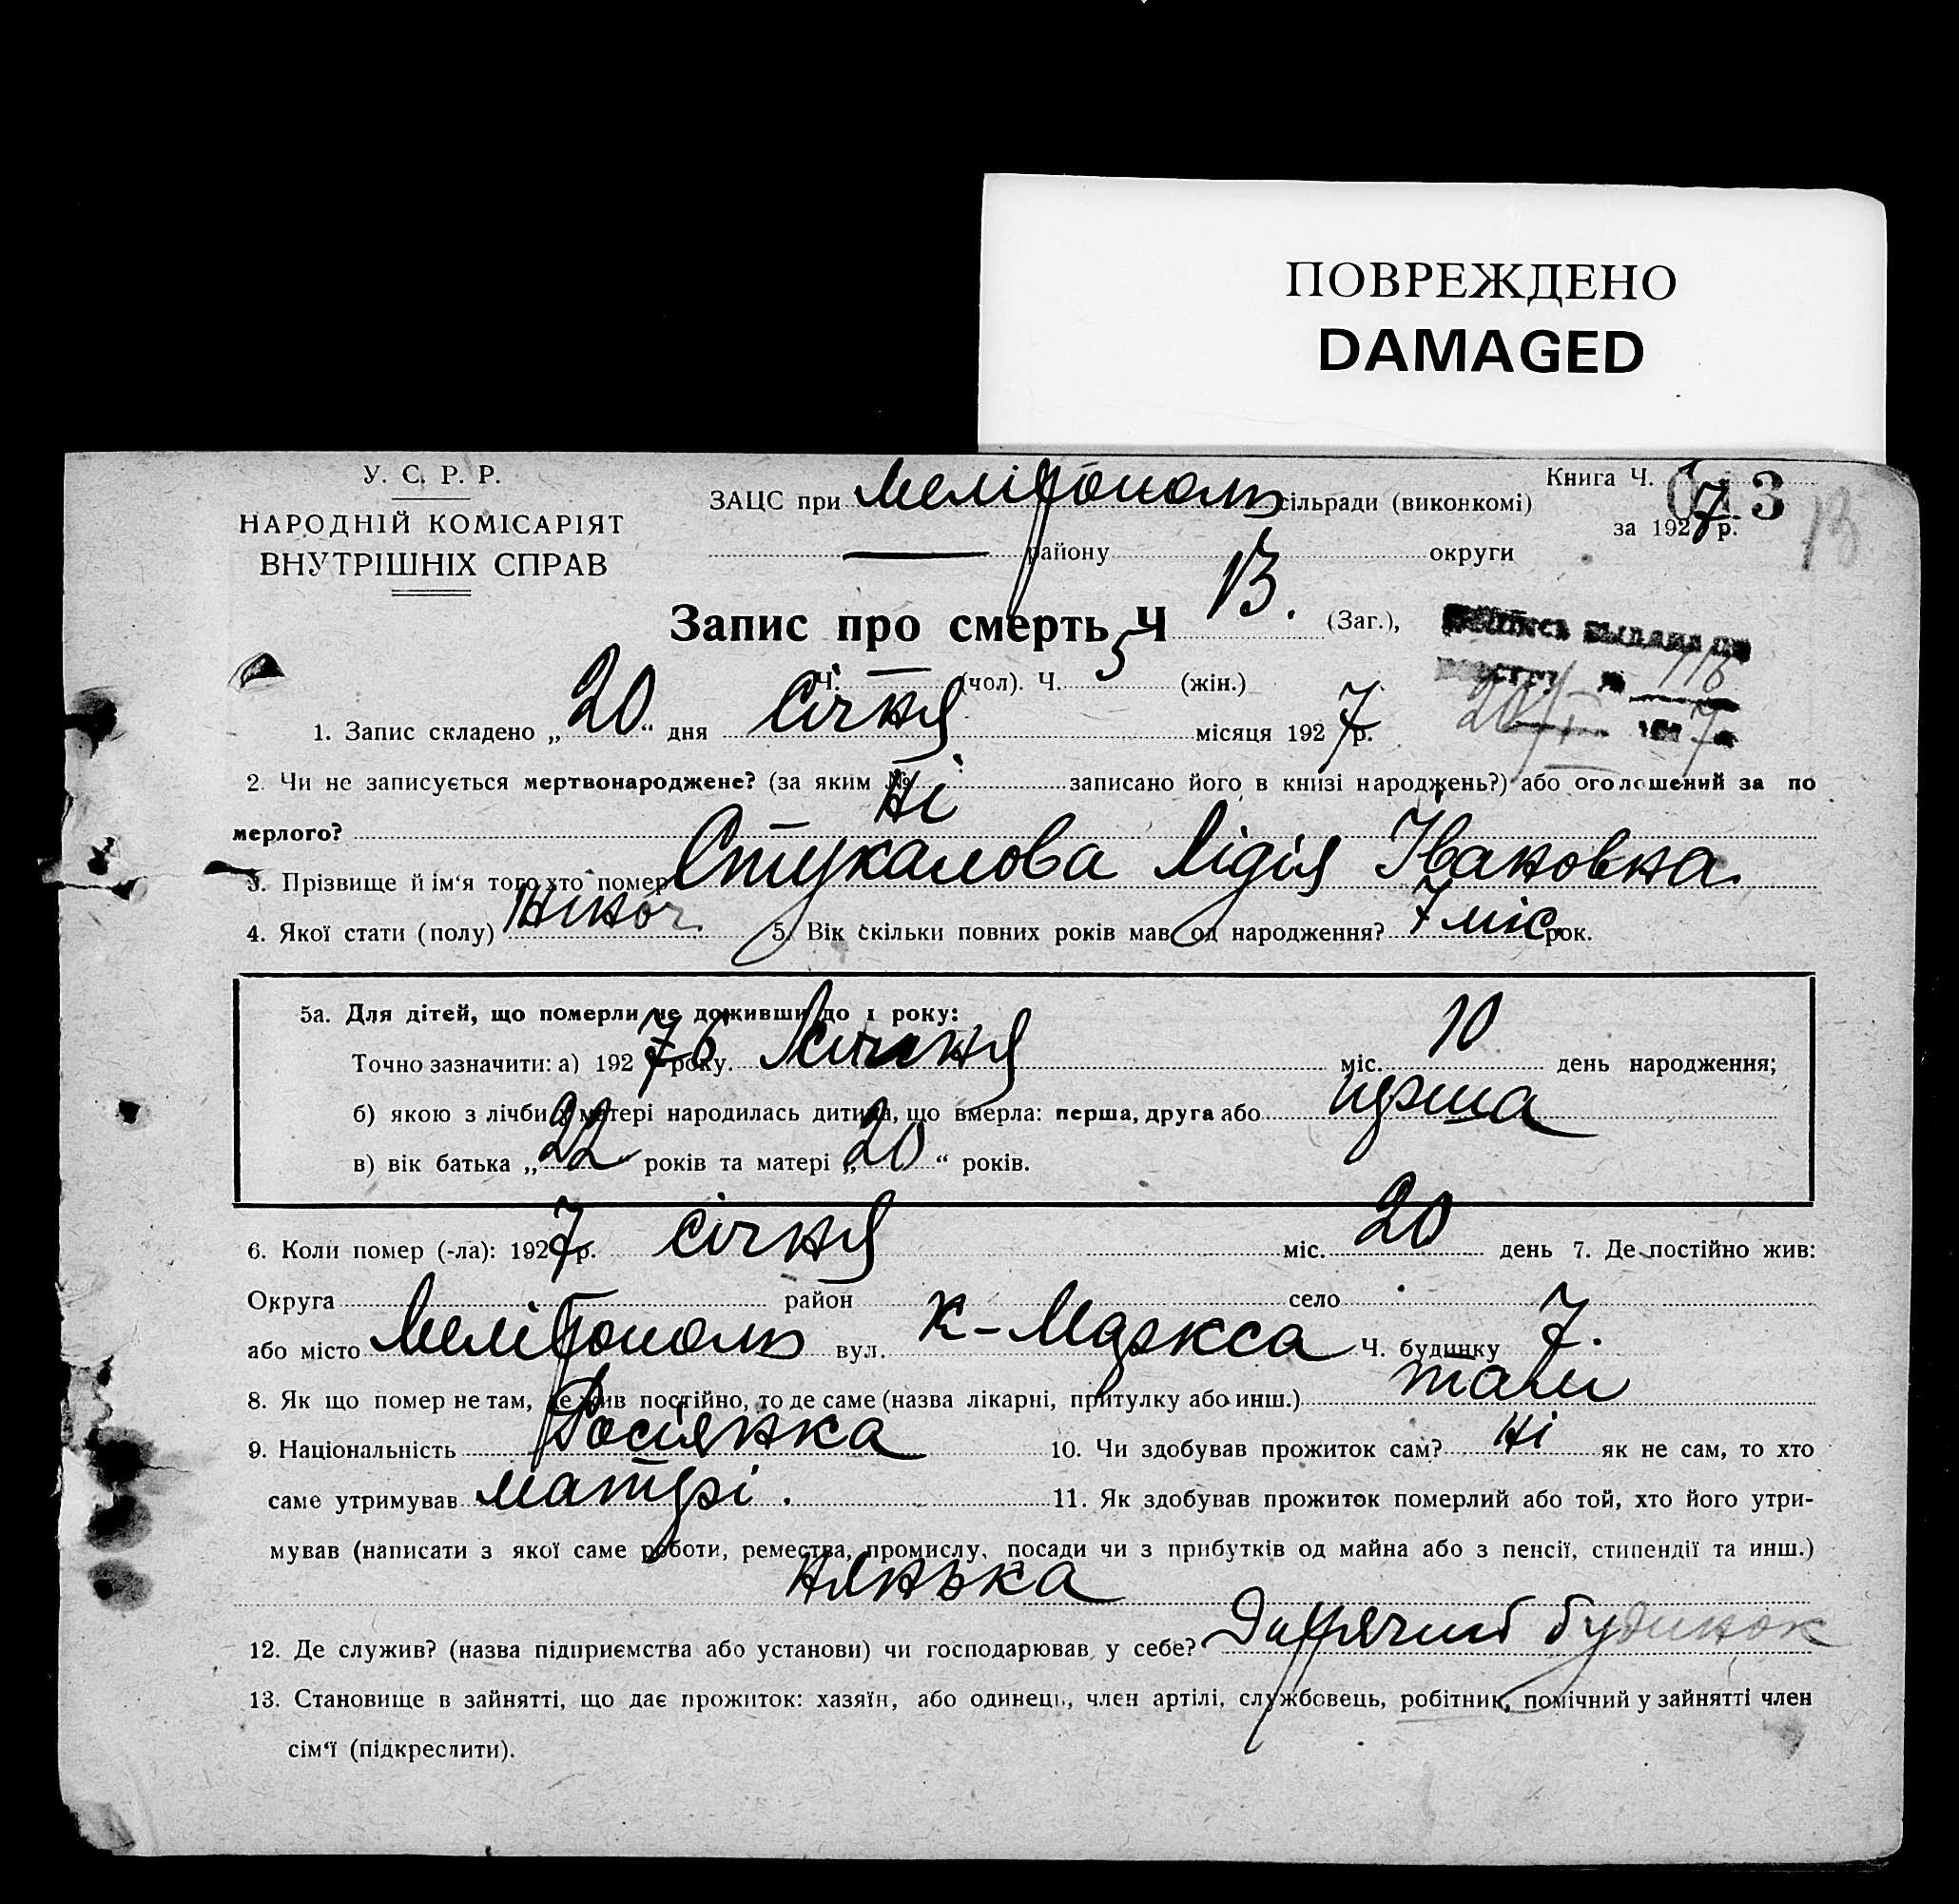 ПОВРЕЖДЕНО
DAMAGED
У. С. Р. Р.
НАРОДНІЙ КОМІСАРІЯТ
ВНУТРІШНІХ СПРАВ
ЗАЦС при Мелітополь сільради (виконкомі)
району округи
Книга Ч. 1
013
за 1927 р.
13
Запис про смерть Ч 13. (Заг.),
Ч. — (чол). Ч. 5 (жін.)
выдана
№ 116
20/I 1927
1. Запис складено „20“ дня Січня місяця 1927 р.
2. Чи не записується мертвонароджене? (за яким № записано його в книзі народжень?) або оголошений за по
мерлого? Ні
3. Прізвище й ім‘я того хто помер Стукалова Лідія Івановна.
4. Якої стати (полу) жіноч. 5. Вік скільки повних років мав од народження? 7 міс. рок.
5а. Для дітей, що померли не доживши до 1 року:
Точно зазначити: а) 1926 року. міс. 10 день народження;
б) якою з лічби у матері народилась дитина, що вмерла: перша, друга або перша
в) вік батька „22“ років та матері „20“ років.
6. Коли помер (-ла): 1927 р. січня міс. 20 день 7. Де постійно жив:
Округа район село
або місто Мелітополь вул. К-Маркса Ч. будинку 7.
8. Як що помер не там, де жив постійно, то де саме (назва лікарні, притулку або инш.) там
9. Національність Росіянка 10. Чи здобував прожиток сам? Ні як не сам, то хто
саме утримував матері. 11. Як здобував прожиток померлий або той, хто його утри-
мував (написати з якої саме роботи, ремества, промислу, посади чи з прибутків од майна або з пенсії, стипендії та инш.)
нянька
12. Де служив? (назва підприємства або установи) чи господарював у себе? Дитячий будинок
13. Становище в зайнятті, що дає прожиток: хазяїн, або одинець, член артілі, службовець, робітник, помічний у зайнятті член
сім‘ї (підкреслити).